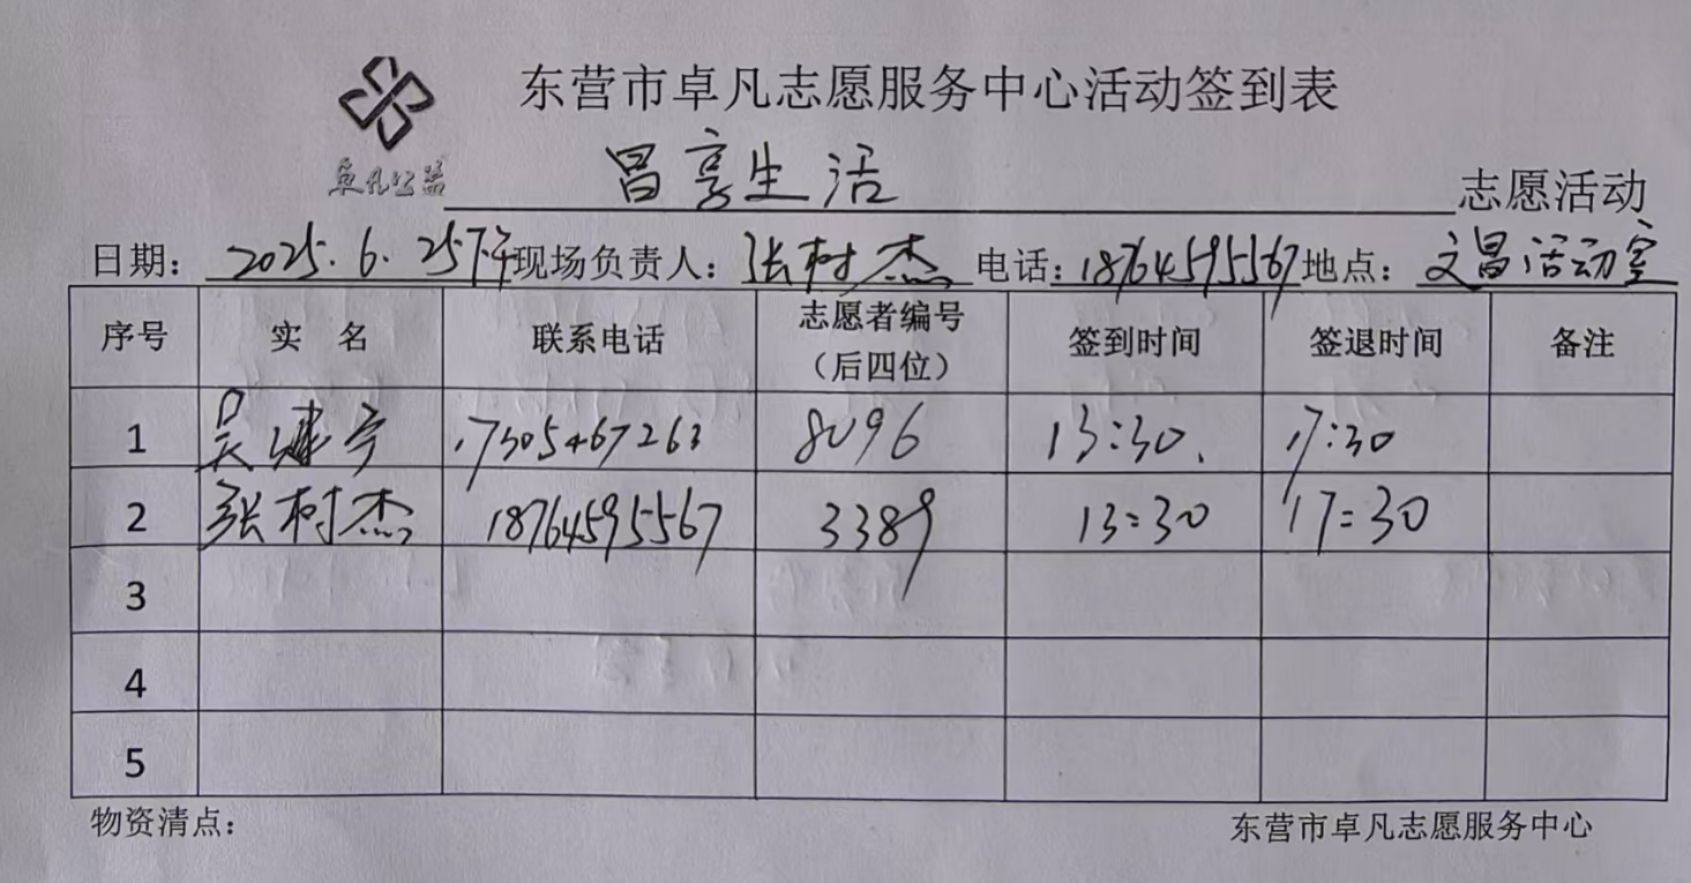 东营市卓凡志愿服务中心活动签到表
卓凡公益
昌享生活 志愿活动
日期：2025.6.25下午 现场负责人：张树杰 电话：18764595567 地点：文昌活动室
序号 实 名 联系电话 志愿者编号（后四位） 签到时间 签退时间 备注
1 吴建宁 17305467263 8096 13:30. 17:30
2 张树杰 18764595567 3389 13:30 17:30
3
4
5
物资清点： 东营市卓凡志愿服务中心